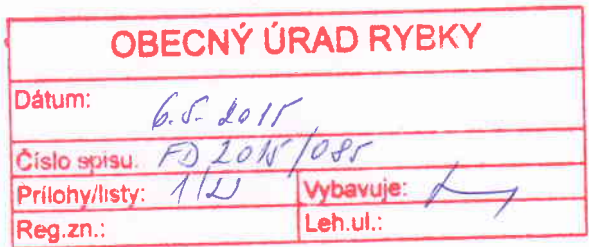 OBECNÝ ÚRAD RYBKY
Dátum: 6.5.2015
Číslo spisu: FD 2015/085
Prílohy/listy: 1/ Vybavuje:
Reg.zn.: Leh.ul.: